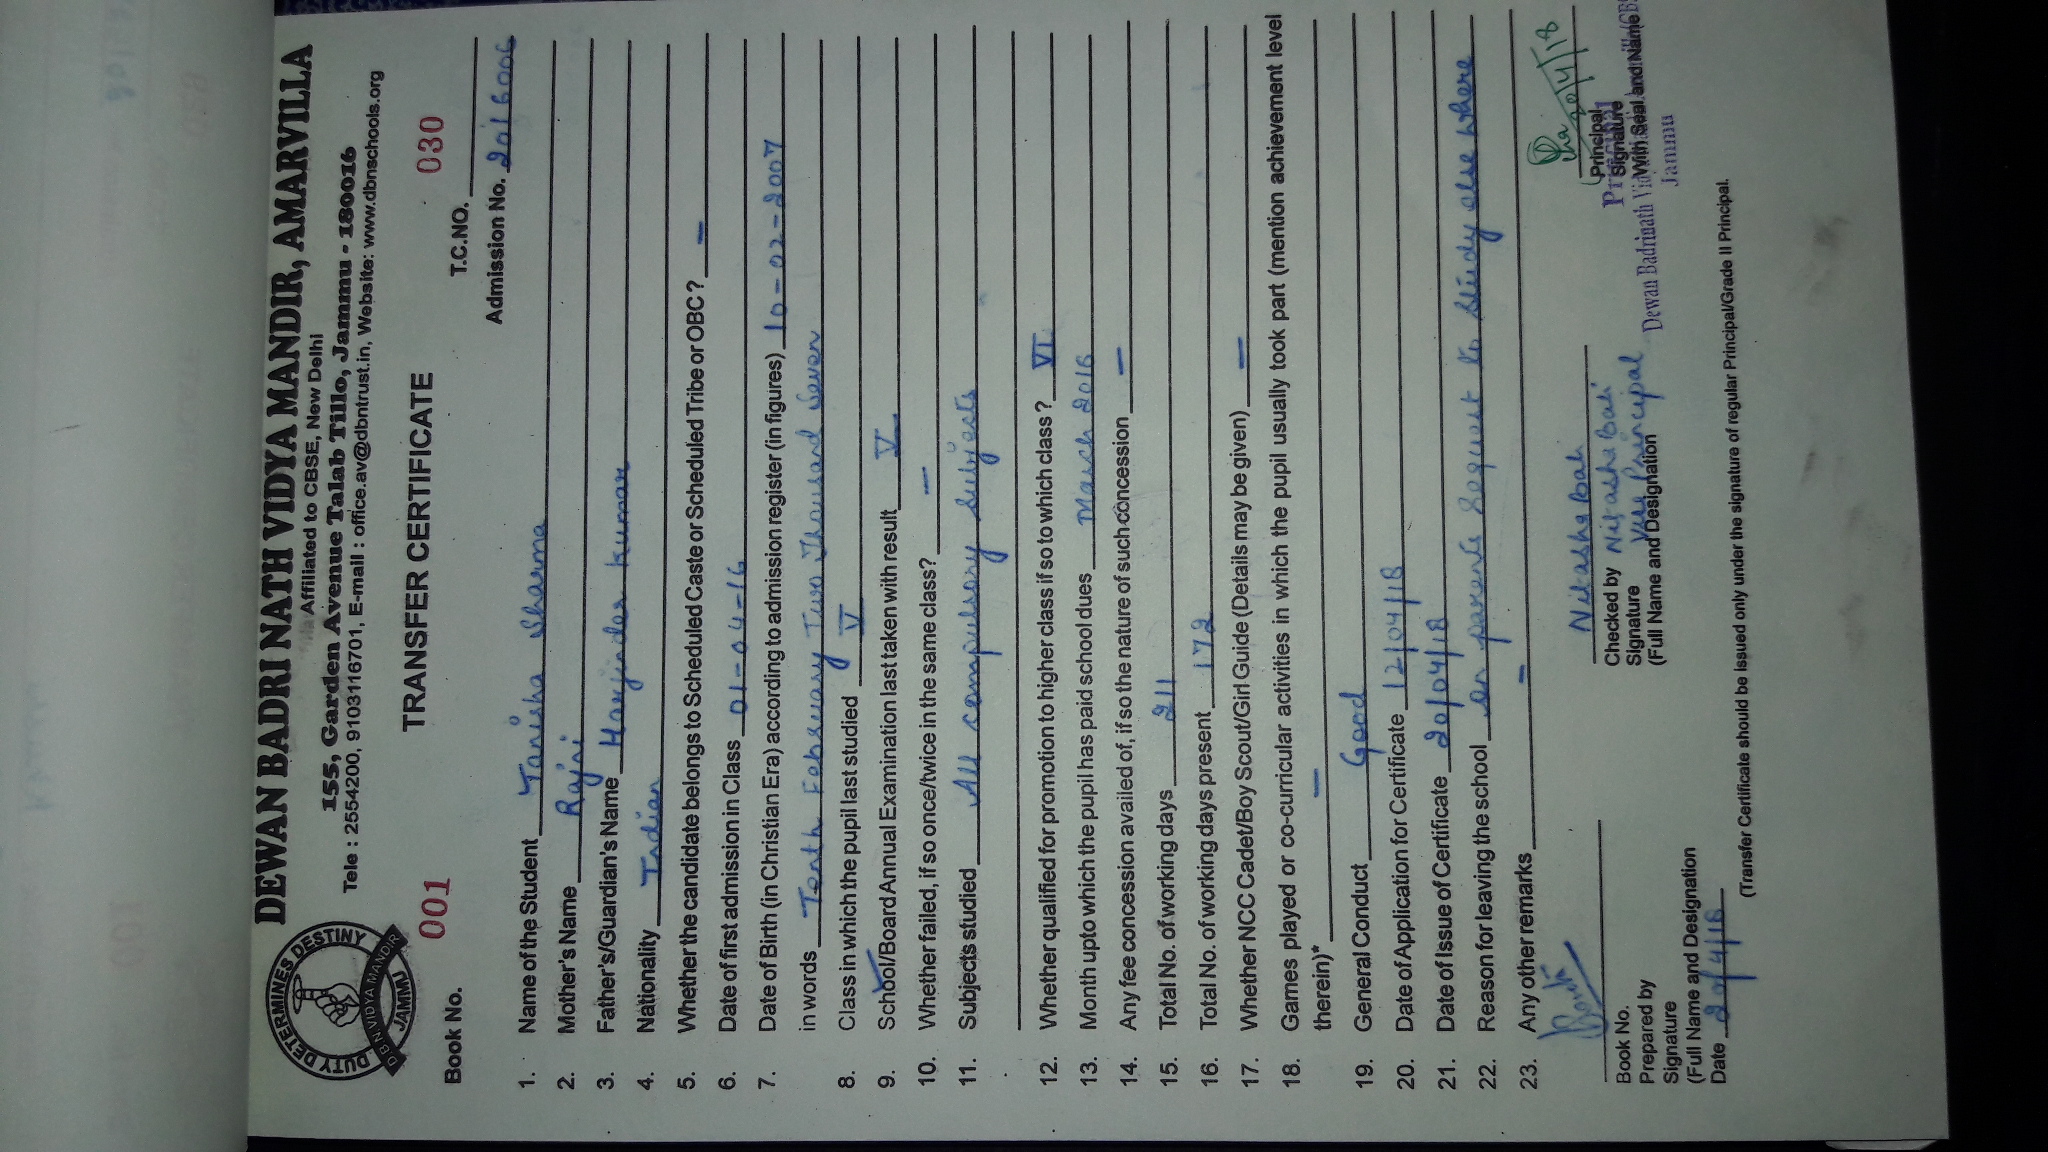 DUTY DETERMINES DESTINY
DBN VIDYA MANDIR
JAMMU
DEWAN BADRI NATH VIDYA MANDIR, AMARVILLA
Affiliated to CBSE, New Delhi
155, Garden Avenue Talab Tillo, Jammu - 180016
Tele : 2554200, 9103116701, E-mail : office.av@dbntrust.in, Website: www.dbnschools.org
TRANSFER CERTIFICATE
Book No. 001 T.C.NO. 030
Admission No. 2016006
1. Name of the Student Tanisha Sharma
2. Mother's Name Rajni
3. Father's/Guardian's Name Harjinder Kumar
4. Nationality Indian
5. Whether the candidate belongs to Scheduled Caste or Scheduled Tribe or OBC? —
6. Date of first admission in Class 01-04-16
7. Date of Birth (in Christian Era) according to admission register (in figures) 10-02-2007
in words Tenth February Two Thousand Seven
8. Class in which the pupil last studied V
9. School/Board Annual Examination last taken with result V
10. Whether failed, if so once/twice in the same class? —
11. Subjects studied All compulsory Subjects
12. Whether qualified for promotion to higher class if so to which class? VI
13. Month upto which the pupil has paid school dues March 2016
14. Any fee concession availed of, if so the nature of such concession —
15. Total No. of working days 211
16. Total No. of working days present 172
17. Whether NCC Cadet/Boy Scout/Girl Guide (Details may be given) —
18. Games played or co-curricular activities in which the pupil usually took part (mention achievement level
therein)* —
19. General Conduct Good
20. Date of Application for Certificate 12/04/18
21. Date of Issue of Certificate 20/04/18
22. Reason for leaving the school on parents request to study else where
23. Any other remarks —
20/4/18
Book No.
Prepared by
Signature
(Full Name and Designation
Date 20/4/18
Checked by
Signature Vice Principal
(Full Name and Designation
(Principal
Signature
With Seal and Name
Principal
Dewan Badrinath
Jammu
(Transfer Certificate should be Issued only under the signature of regular Principal/Grade II Principal.